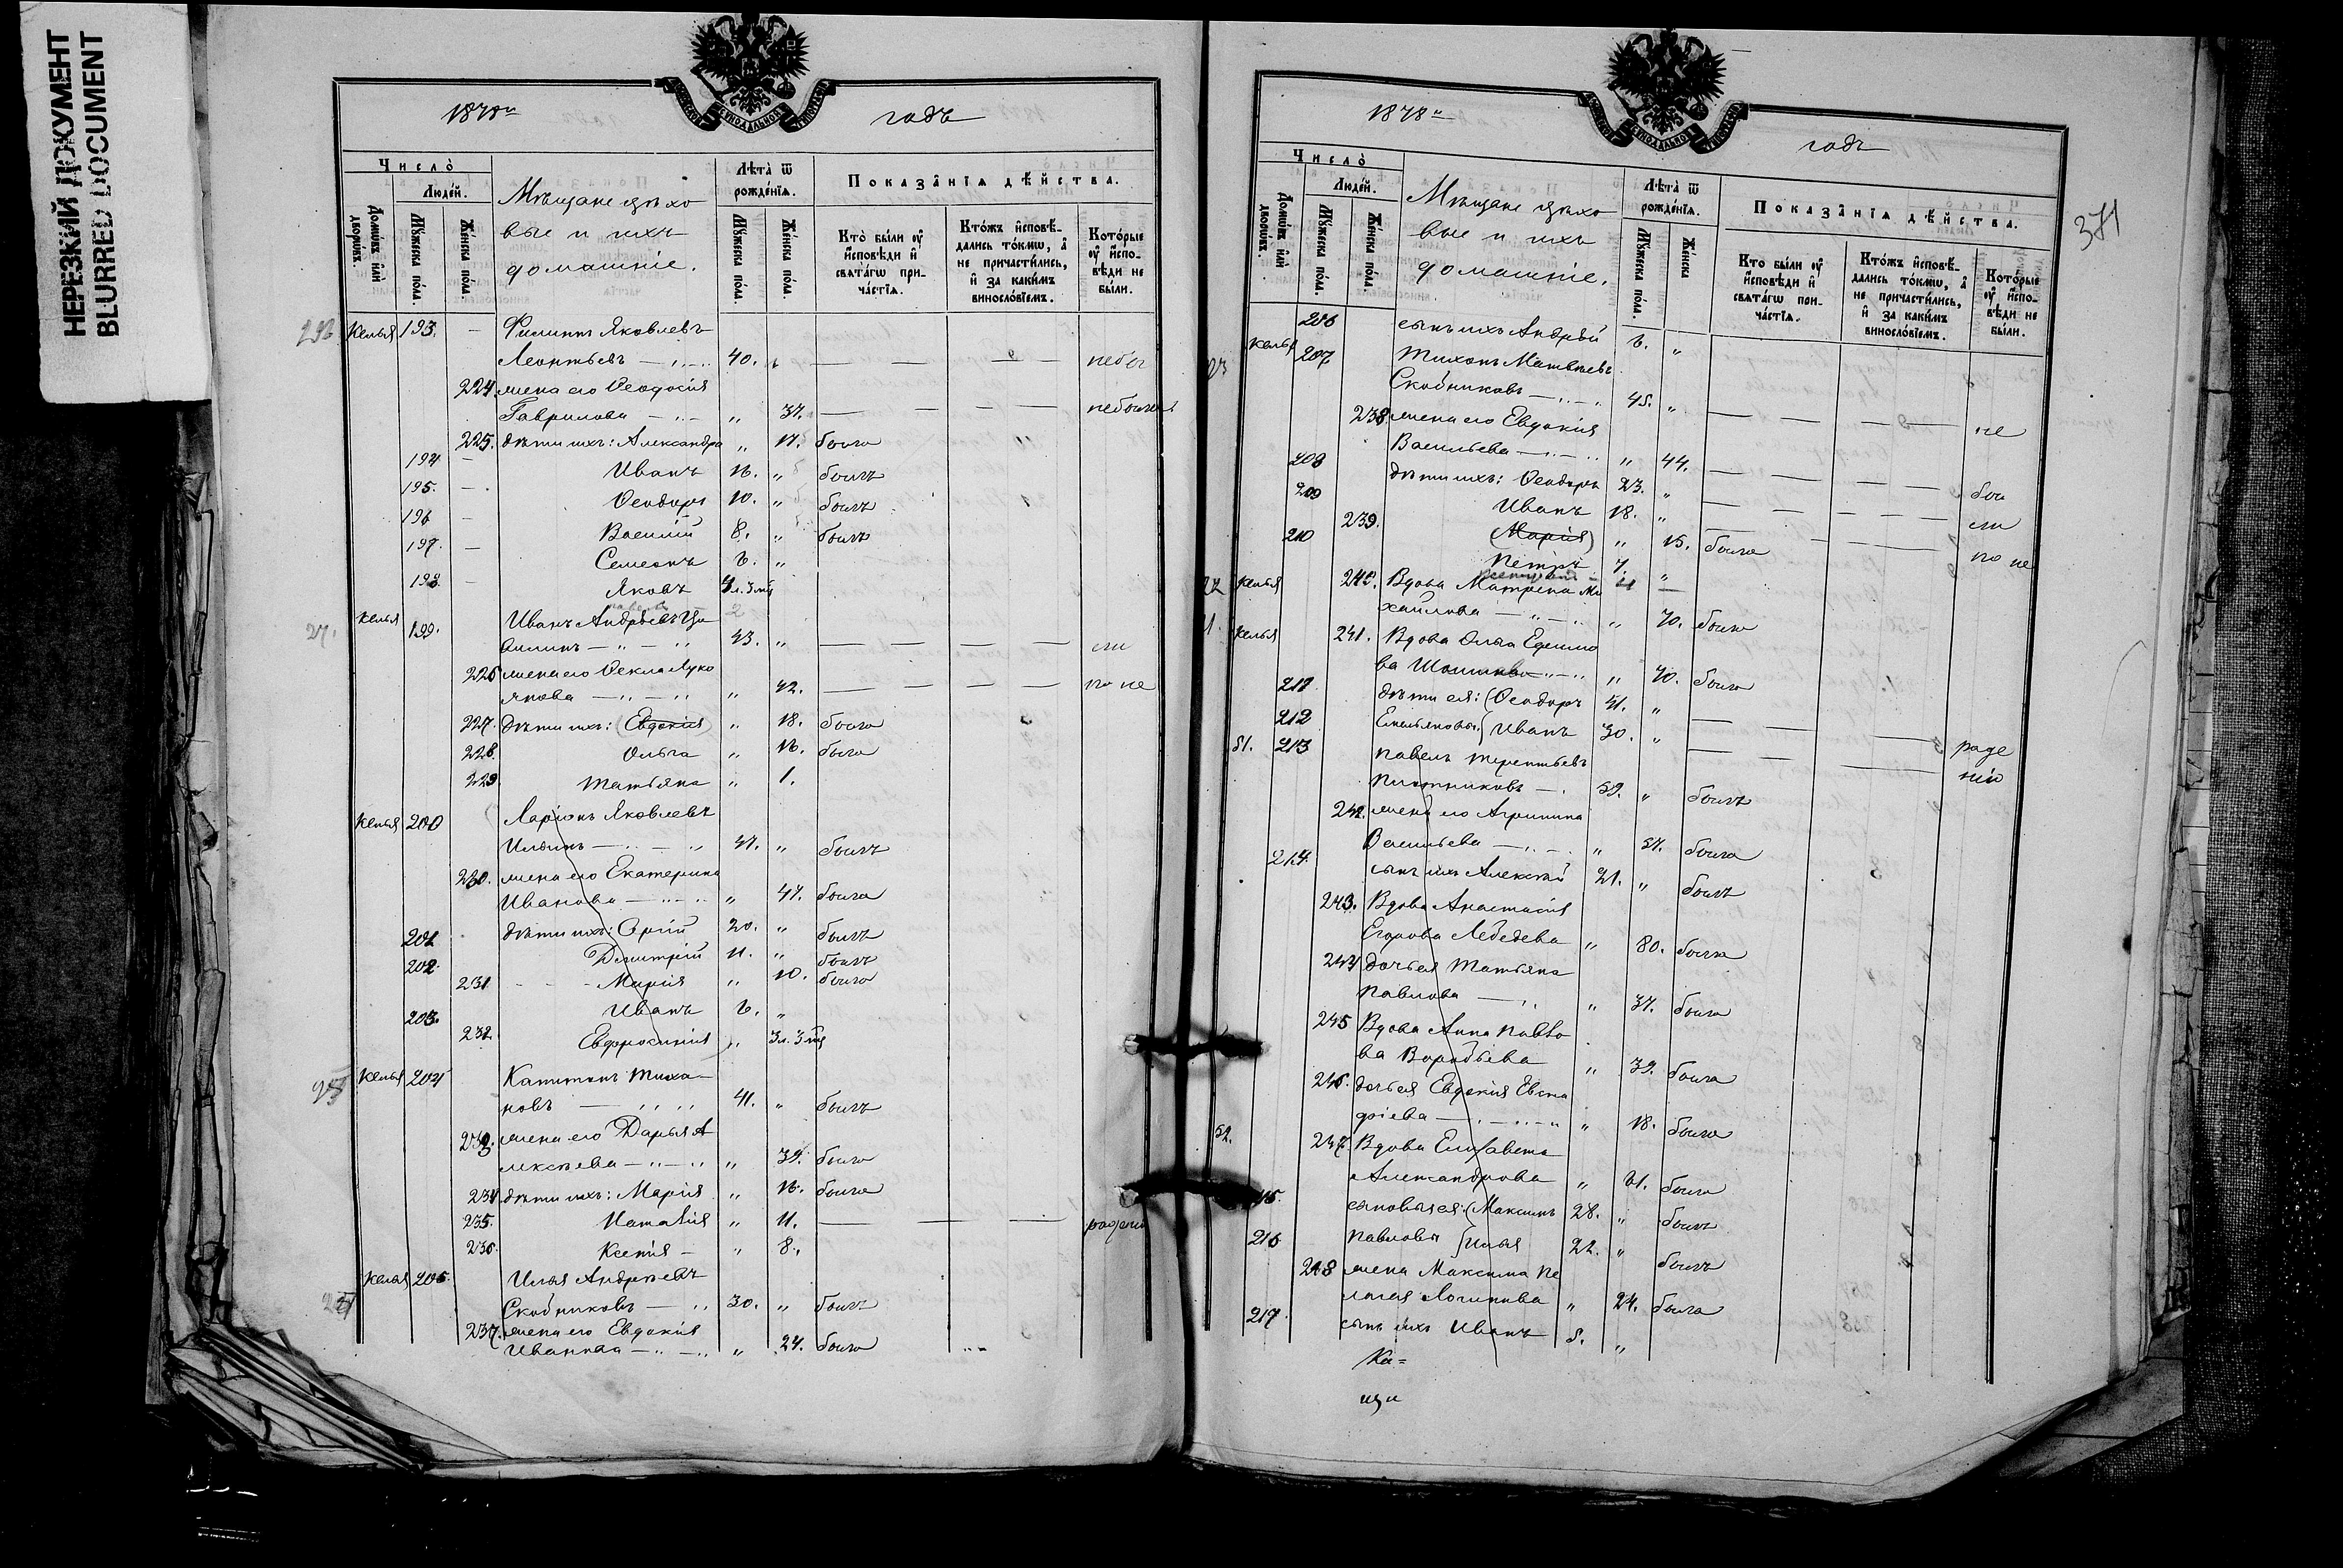 НЕРЕЗКИЙ ДОКУМЕНТ
BLURRED DOCUMENT
1878 годъ
Число̀
Людей.
Домѡвъ или дворѡвъ.
Мꙋжеска пола.
Женска пола.
Мѣщане цѣхо
вые и ихъ
домашніе.
Лѣта ѿ рожденїѧ.
Мꙋжеска пола.
Женска пола.
Показанїѧ дѣйства.
Кто были ꙋ исповѣди и свѧтагѡ причастїѧ.
Ктожъ исповѣдались токмѡ, а не причастились, и за какимъ винословїемъ.
Которые ꙋ исповѣди не были.
Келья 193. Филиппъ Яковлевъ
Леонтьевъ 40. небы
224. жена его Ѳеодосія
Гаврилова " 37.
225. дѣти ихъ: Александра " 17. была
194 Иванъ 16. " былъ
195. Ѳеодоръ 10. " былъ
196 Василій 8. " былъ
197. Семеонъ 6. "
198 Яковъ
Келья 199. Иванъ Андреевъ
43. " ли
226 жена его Ѳекла Луко
янова " 42. по не
227. дѣти ихъ: (Евдокія) " 18. была
228. Ольга " 16. была
229. Татьяна " 1.
Келья 200 Ларіонъ Яковлевъ
Ильинъ 47. " былъ
230. жена его Екатерина
Иванова " 47. была
201 дѣти ихъ: Сергій 20. " былъ
202 Дмитрій 11. " былъ
231 Марія " 10. была
203. Иванъ 6. "
232. Евфросинія " 3 л.
Келья 204 Капитонъ Тиха
новъ 41. " былъ
233. жена его Дарья А
лексѣева " 39. была
234 дѣти ихъ: Марія " 16. была
235. Наталія " 11.
236. Ксенія " 8.
Келья 205. Илья Андреевъ
Скобниковъ 30. " былъ
237. жена его Евдокія
Иванова " 24. была
1878 годъ
371
Число̀
Людей.
Домѡвъ или дворѡвъ.
Мꙋжеска пола.
Женска пола.
Мѣщане цѣхо
вые и ихъ
домашніе.
Лѣта ѿ рожденїѧ.
Мꙋжеска пола.
Женска
Показанїѧ дѣйства.
Кто были ꙋ исповѣди и свѧтагѡ причастїѧ.
Ктожъ исповѣдались токмѡ, а не причастились, и за какимъ винословїемъ.
Которые ꙋ исповѣди не были.
206 сынъ ихъ Андрей 6. "
Келья 207 Тихонъ Матвѣевъ
Скобниковъ 45. " не
238. жена его Евдокія
Васильева " 44.
208 дѣти ихъ: Ѳеодоръ 23. " бы
209 Иванъ 18. " ли
239. (Марія) " 15. была
210 Петръ 7. " по не
Келья 240. Вдова Матрена Ми
хайлова " 70. была
Келья 241. Вдова Ольга Ефимо
ва " 70. была
211 дѣти ея: (Ѳеодоръ 41. "
212 Емельяновы: (Иванъ 30. " раде
51. 213 Павелъ Терентьевъ нію
Плотниковъ 59. " былъ
242. жена его Агрипина
Васильева " 57. была
214. сынъ ихъ Алексѣй 21. " былъ
243. Вдова Анастасія
Егорова Лебедева " 80. была
244 дочь ея Татьяна
Павлова " 37. была
245 Вдова Анна Павло
ва Воробьева " 39. была
246. дочь ея Евдокія Евста
фіева " 18. была
52. 247. Вдова Елизавета
Александрова " 61. была
215. сыновья ея: (Максимъ 28. " былъ
216 Павловы (Илья 22. " былъ
248 жена Максима Пе
лагея Логинова " 24. была
217 сынъ ихъ Иванъ 5. "